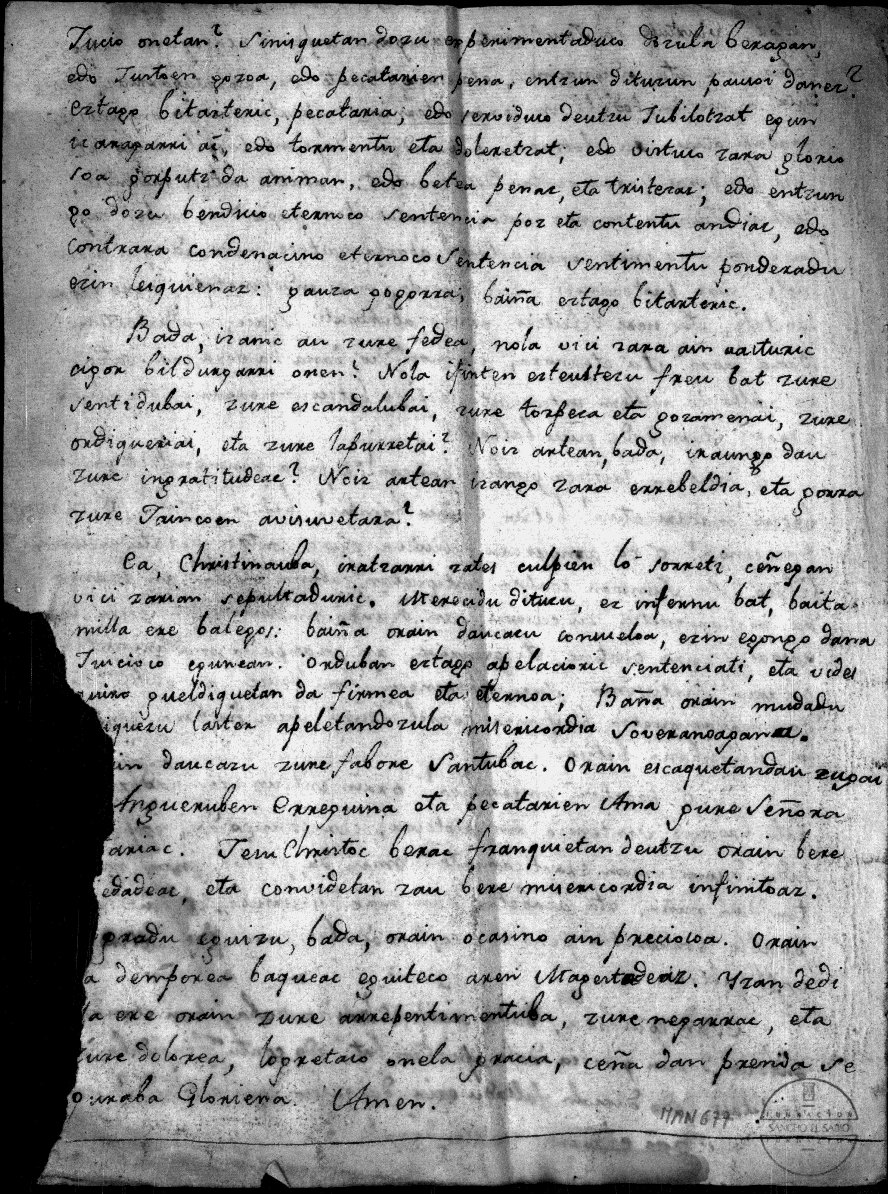 Jucio onetan? Sinisquetan dozu experimentaduco dozula beragan,
edo Justoen gozoa, edo pecatarien pena, entzun dituzun pausoi danez?
Eztago bitarteric, pecataria; edo serviduco deutzu Jubilotzat egun
icaragarri ai, edo tormentu eta doloretzat; edo irtuco zara glorio
soa gorputz da animan, edo betea penaz, eta tristezaz; edo entzun
go dozu bendicio eternoco sentencia poz eta contentu andiaz, edo
contrara condenacino eternoco sentencia sentimentu ponderadu
ezin leiquienaz: gauza gogorra; baiña eztago bitarteric.
Bada, izanic au, zure fedea, nola vici zara ain azturic
egor bildurgarri onen? Nola ifinten ezteustezu freu bat zure
sentidubai, zure escandalubai, zure torpeza eta gozamenai, zure
ordiqueriai, eta zure lapurretai? Noiz artean, bada, iraungo dau
zure ingratitudeac? Noiz artean izango zara errebeldia, eta gorra
zure Jaincoen avisuvetara?
Ea, Christinauba, iratzarri zatez culpien lo sorreti, ceñegan
vici zarian sepultaduric. Merecidu dituzu, ez infernu bat, baita
milla ere balegoz: baiña orain daucazu consueloa, ezin egongo dana
Juicioco egunean. Orduban eztago apelacioric sentenciati, eta videz
gueldiquetan da firmea eta eternoa; Baña orain mudadu
iquezu laster apeletandozula misericordia Soveranoagana.
in daucazu zure fabore Santubac. Orain escaquetandau zugaiti
Angueruben Erreguina eta pecatarien Ama gure Señora
ariac. Jesu Christoc berac franquietan deutzu orain bere
iedadeac, eta convidetan zau bere misericordia infinitoaz.
gradu eguizu, bada, orain ocasino ain preciosoa. Orain
a demporea baqueac eguiteco aren Magestadeaz. Yzan dedi
la ere orain zure arrepentimentuba, zure negarrac, eta
zure dolorea, logretaco onela gracia, ceña dan prenda se
guraba Gloriena. Amen.
MAN 677
FUNDACION
SANCHO EL SABIO